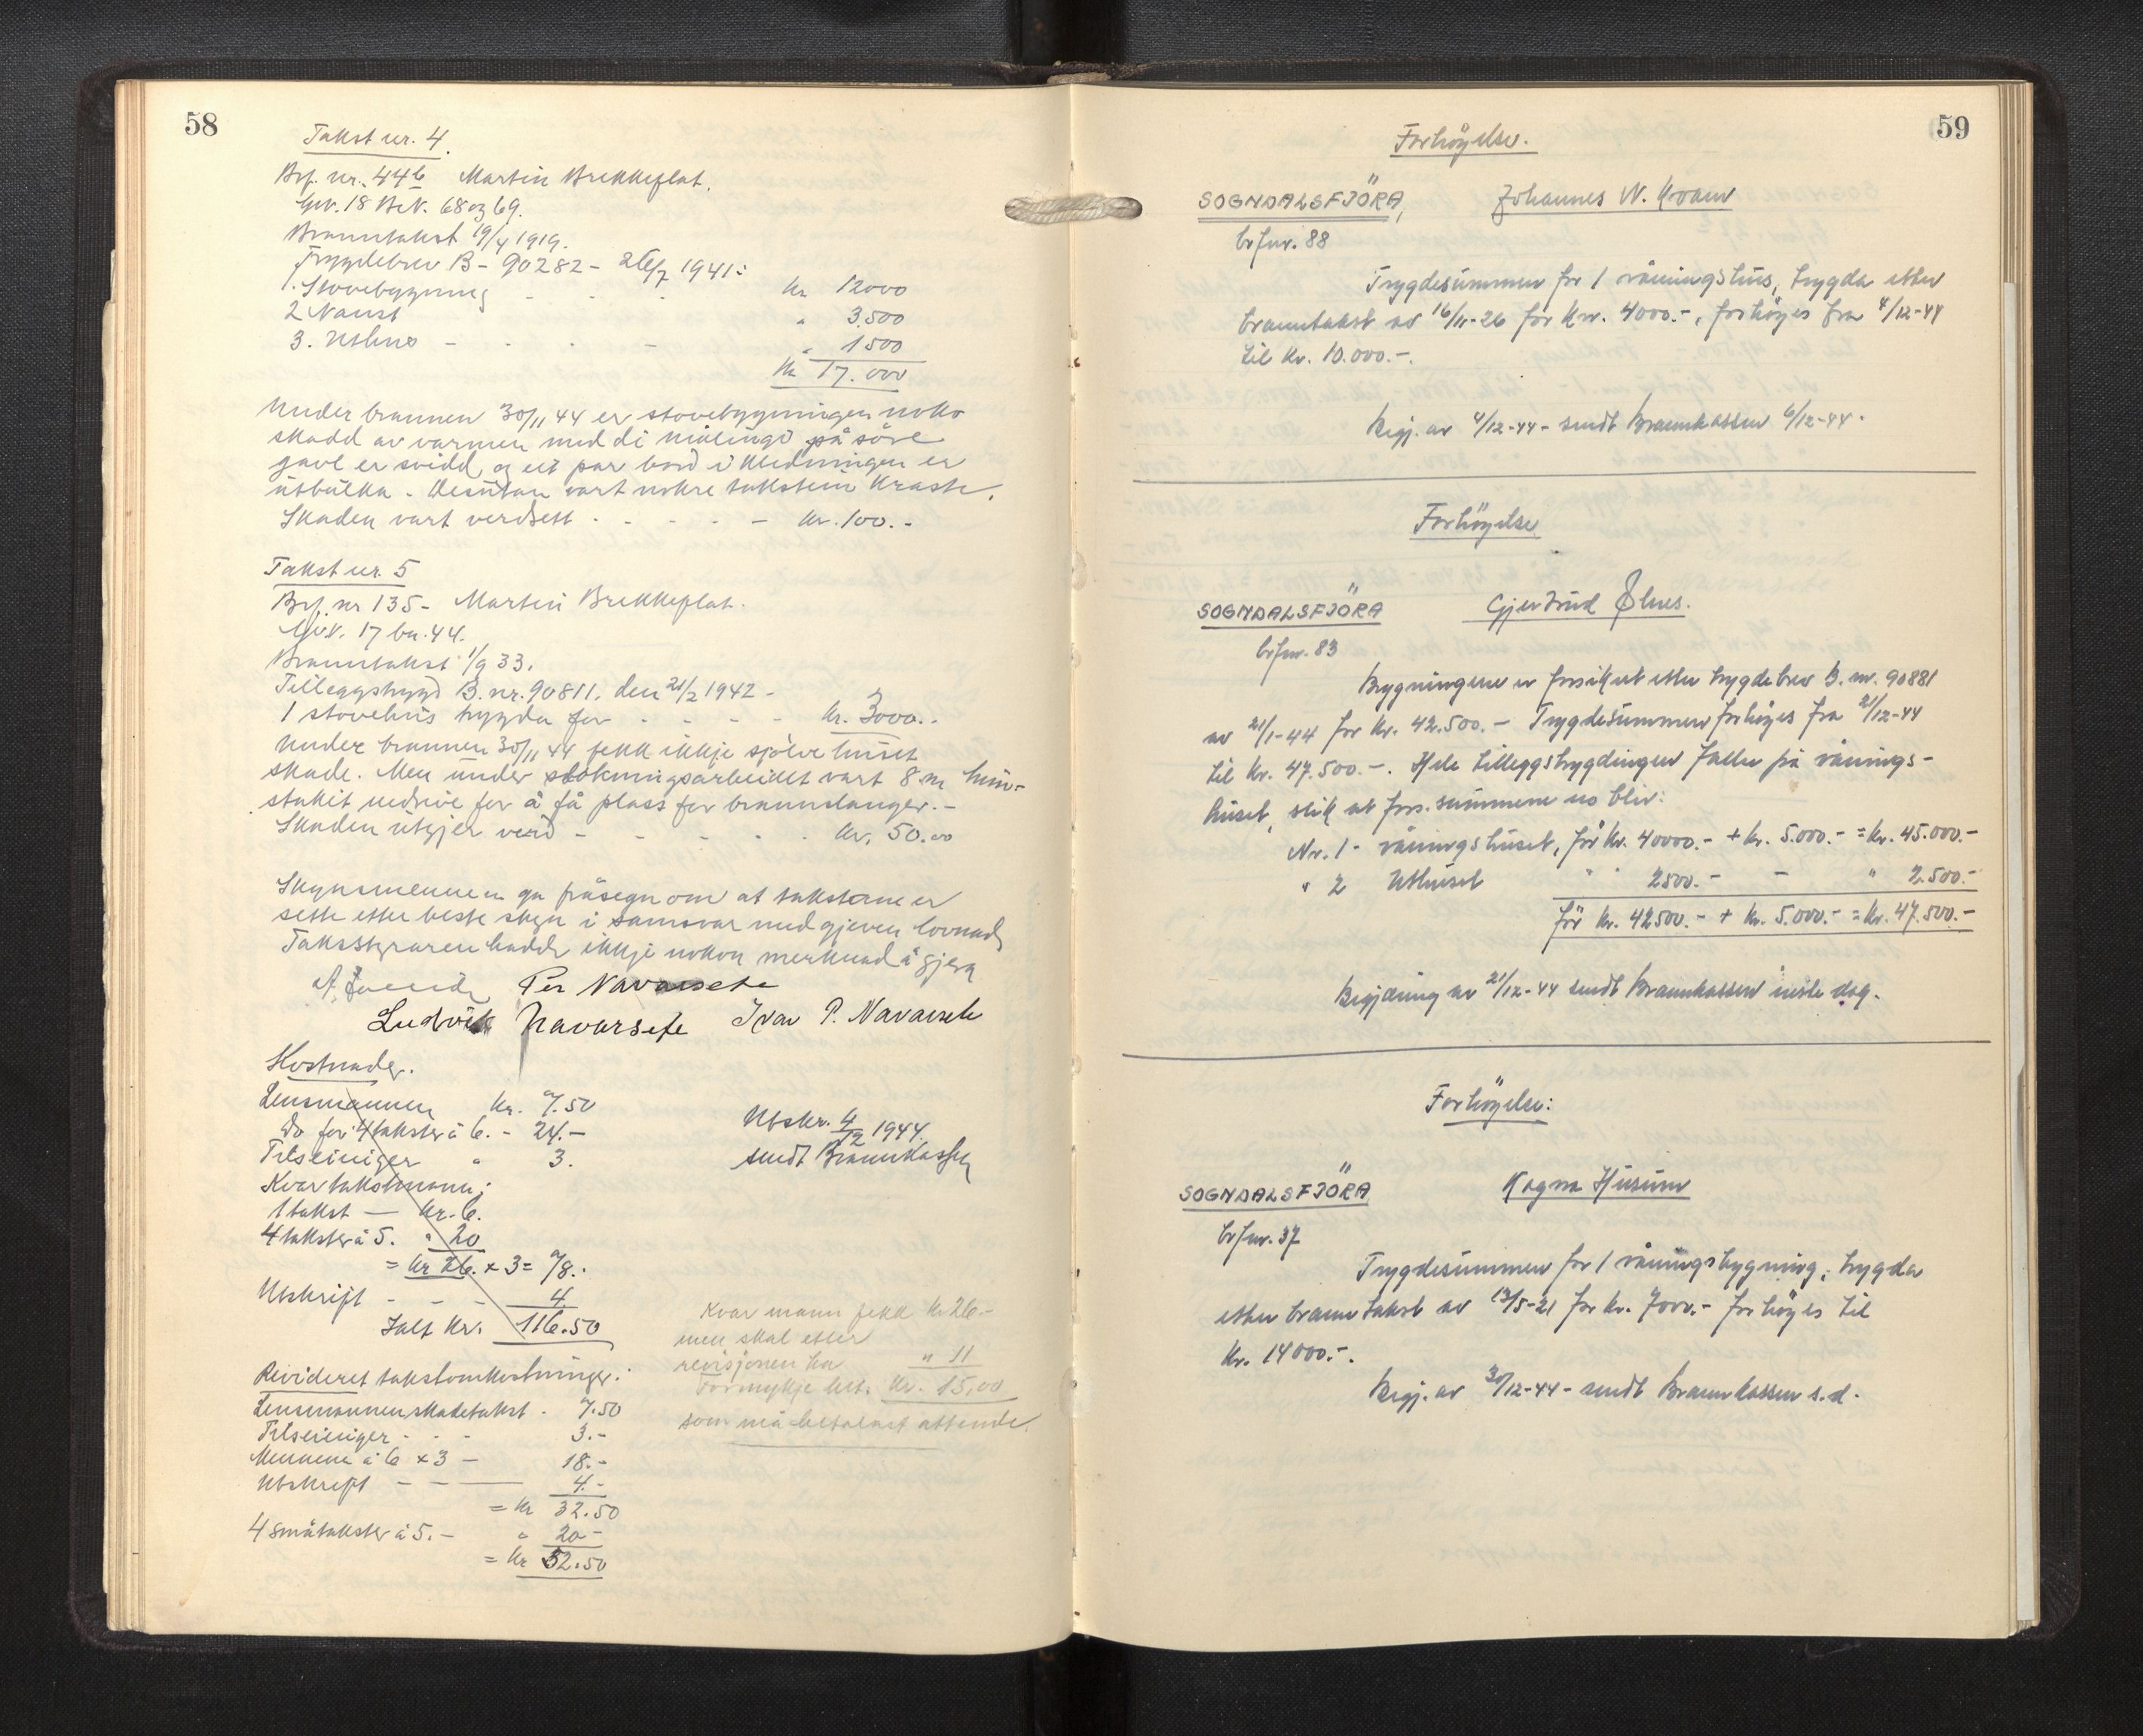 58
Takst nr. 4.
Brf. nr. 44b Martin Brekkeflat.
Gnr. 18 Bnr. 68 og 69.
Branntakst 19/4 1919.
Trygdebrev B - 90282 - 26/7 1941:
1. Stovebygning - - - kr 12000
2 Naust " 3.500
3. Uthus - - - - " 1500
Kr 17.000
Under brannen 30/11 44 er stovebygningen noko
skadd av varmen med di målingi på söre
gavl er svidd og eit par bord i kledningen er
utbulka. Desutan vart nokre takstein knaste.
Skaden vart verdsett - - - - - kr. 100.-
Takst nr. 5
Brf. nr 135 - Martin Brekkeflat.
Gnr. 17 bn. 44.
Branntakst 1/9 33.
Tilleggstrygd B. nr. 90811. den 21/2 1942 -
1 stovehus trygda for - - - - kr. 3000.-
Under brannen 30/11 44 fekk ikkje sjölve huset
skade. Men under slokningsarbeidet vart 8 m
stakit nedrive for å få plass for brannslanger.-
Skaden utgjer verd - - - - - kr. 50.00
Skynsmennen ga fråsegn om at takstene er
sette etter beste skyn i samsvar med gjeven lovnad
Takststyraren hadde ikkje nokon merknad å gjera
Per Navarsete
Ludvik Navarsete Ivar P. Navarsete
Kostnader.
Lensmannen kr. 7.50
Do for 4 takster à 6. - 24.-
Tilseiniger " 3.
Kvar takstmann:
1 takst — kr. 6.
4 takster à 5. " 20
= kr 26. x 3 = 78.-
Utskrift - - - 4.
Ialt kr. 116.50
Utskr. 4/12 1944.
sendt Brannkassen
Kvar mann fekk kr 26.-
men skal etter
revisjonen ha " 11
Formykje bet. kr. 15,00
som må betalast attende.
Revideret takstomkostninger:
Lensmannen skadetakst - 7.50
Tilseiniger - - - 3.-
Mennene à 6 x 3 - 18.-
Utskrift - - — 4.-
= kr 32.50
4 småtakster à 5.- " 20-
= kr 52.50
59
Forhöyelse.
SOGNDALSFJÖRA, Johannes W. Kvam
brfnr. 88
Trygdesummen for 1 våningshus, trygda etter
branntakst av 16/11-26 for kr. 4000.-, forhöyes fra 4/12-44
til kr. 10.000.-.
Begj. av 4/12-44 - sendt Brannkassen 6/12-44.
Forhöyelse
SOGNDALSFJÖRA Gjertrud Ølnes.
brfnr. 83
Bygningene er forsikret etter trygdebrev B. nr. 90881
av 21/1-44 for kr. 42.500.- Trygdesummen forhöyes fra 21/12-44
til kr. 47.500.-. Hele tilleggstrygdingen faller på vånings-
huset, slik at fors.summene no blir:
Nr. 1 - våningshuset, för kr. 40000.- + kr. 5.000.- = kr. 45.000.-
" 2 Uthuset " " 2500.- - " 2.500.-
för kr. 42500.- + kr. 5.000.- = kr. 47.500.-
Begjæring av 21/12-44 sendt Brannkassen inste dag.
Forhöyelse:
SOGNDALSFJÖRA Ragna Husum
brfnr. 37
Trygdesummen for 1 våningsbygning, trygda
etter branntakst av 13/5-21 for kr. 7000.- forhöyes til
kr. 14000.-.
Begj. av 30/12-44 - sendt Brannkassen s.d.